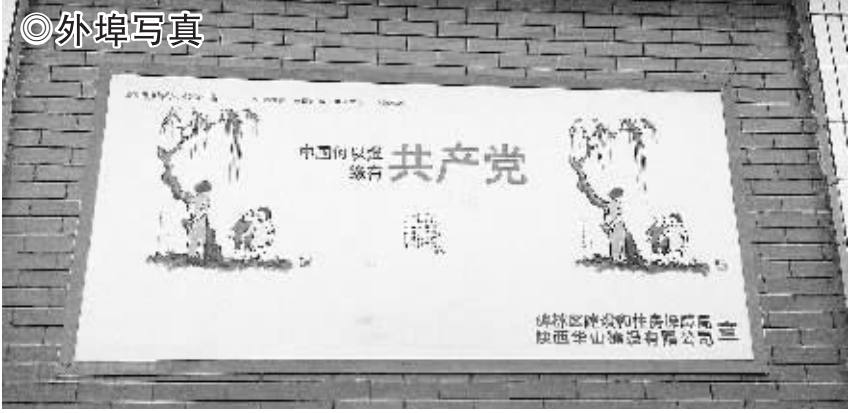 ◎外埠写真
中国何以强
缘有
共产党
碑林区建设和住房保障局
陕西华山建设有限公司
宣